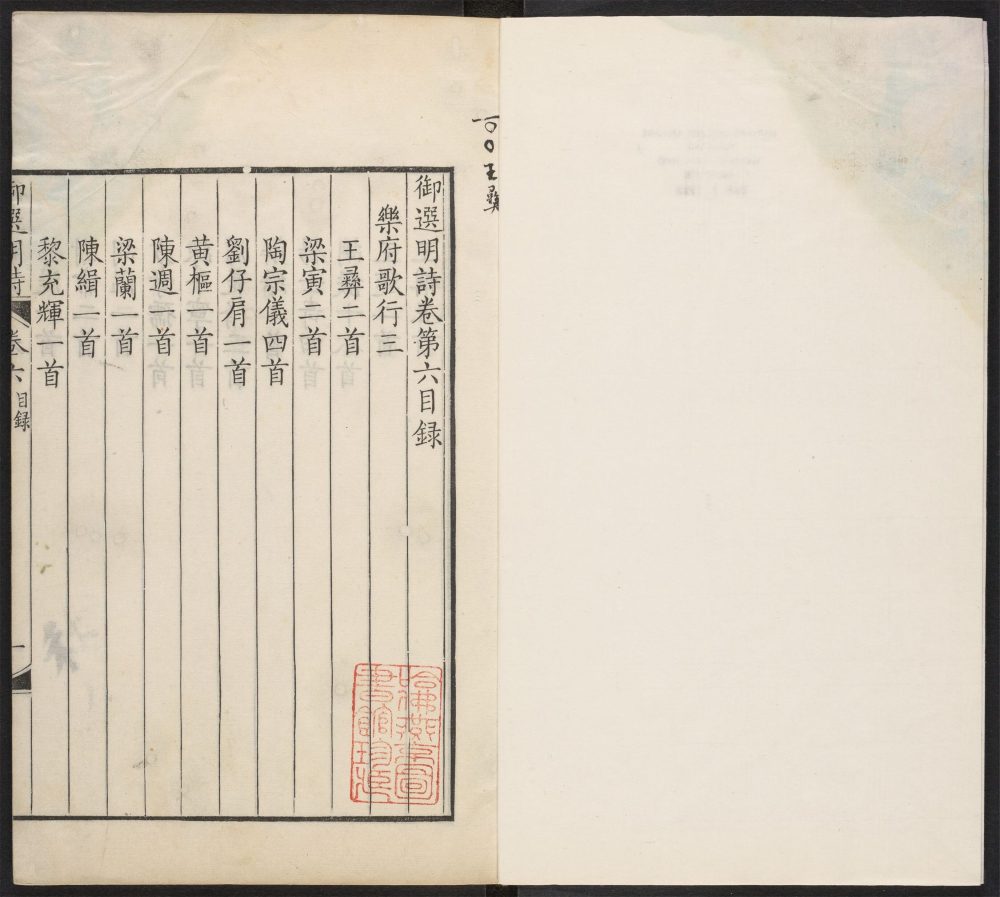 一〇〇王彝
御選明詩卷第六目録
樂府歌行三
王彝二首
梁寅二首
陶宗儀四首
劉仔肩一首
黄樞一首
陳週一首
梁蘭一首
陳緝一首
黎充輝一首
御選明詩 卷六 目録 一
哈佛燕京圖
書館珍藏